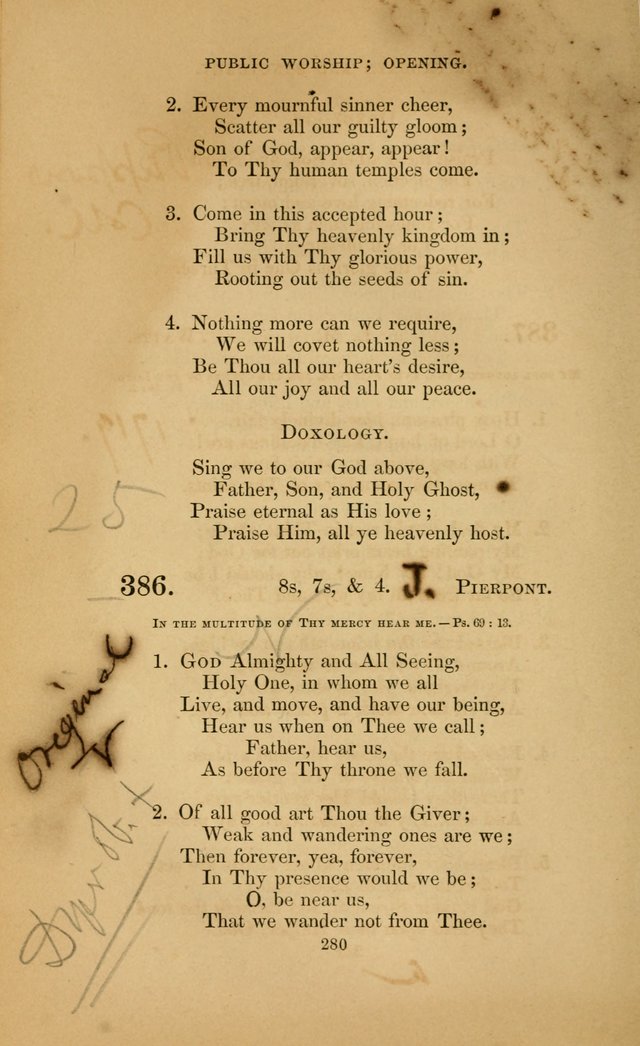 PUBLIC WORSHIP; OPENING.
2. Every mournful sinner cheer,
Scatter all our guilty gloom;
Son of God, appear, appear!
To Thy human temples come.
3. Come in this accepted hour;
Bring Thy heavenly kingdom in;
Fill us with Thy glorious power,
Rooting out the seeds of sin.
4. Nothing more can we require,
We will covet nothing less;
Be Thou all our heart's desire,
All our joy and all our peace.
DOXOLOGY.
Sing we to our God above,
Father, Son, and Holy Ghost,
Praise eternal as His love;
25
Praise Him, all ye heavenly host.
386. 8s, 7s, & 4. J. PIERPONT.
IN THE MULTITUDE OF THY MERCY HEAR ME.—Ps. 69 : 13.
Original
1. GOD Almighty and All Seeing,
Holy One, in whom we all
Live, and move, and have our being,
Hear us when on Thee we call;
Father, hear us,
As before Thy throne we fall.
2. Of all good art Thou the Giver;
Weak and wandering ones are we;
Then forever, yea, forever,
In Thy presence would we be;
O, be near us,
That we wander not from Thee.
280